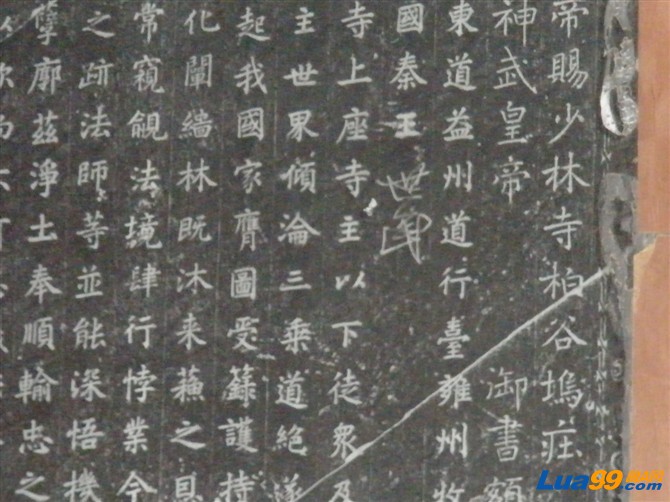 帝賜少林寺柏谷塢莊
神武皇帝 御書額
東道益州道行臺雍州牧
國秦王世民
寺上座寺主以下徒衆及
主世界傾淪三乘道絕
起我國家膺圖受籙護持
化闡緇林既沐来蘓之
常窺覦法境肆行悖業今
之跡法師等並能深悟機
孽廓兹淨土奉順輸忠之
Lua99